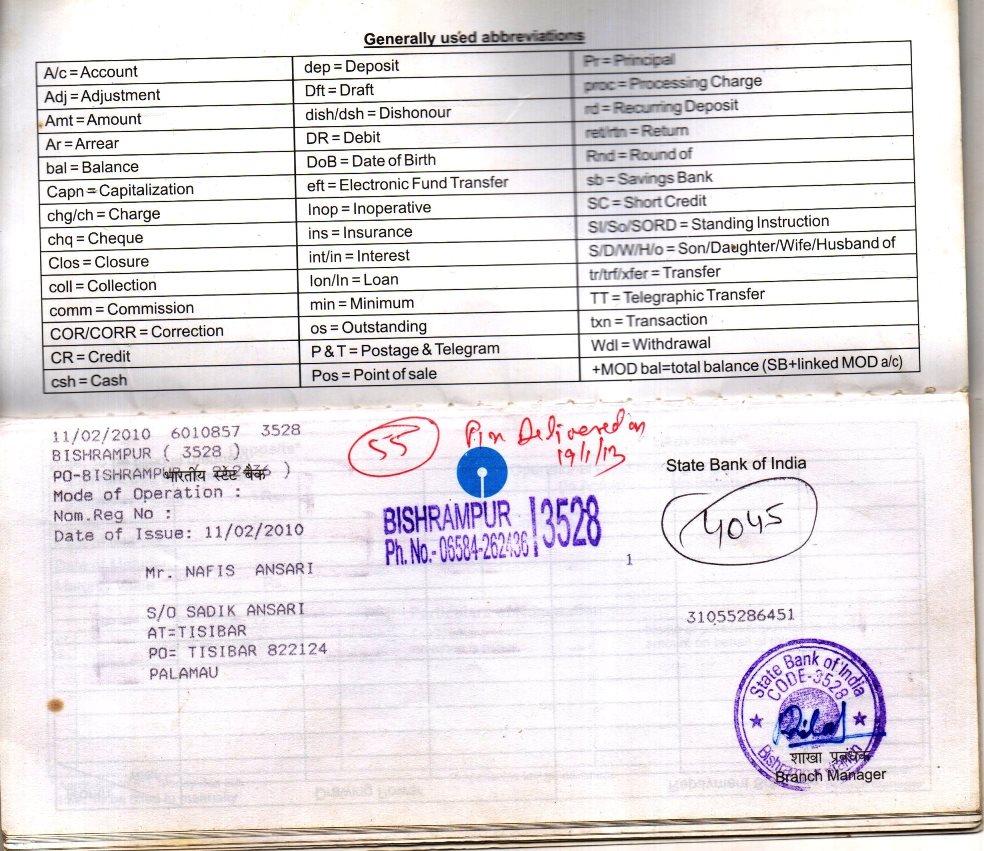 Generally used abbreviations
A/c = Account
Adj = Adjustment
Amt = Amount
Ar = Arrear
bal = Balance
Capn = Capitalization
chg/ch = Charge
chq = Cheque
Clos = Closure
coll = Collection
comm = Commission
COR/CORR = Correction
CR = Credit
csh = Cash
dep = Deposit
Dft = Draft
dish/dsh = Dishonour
DR = Debit
DoB = Date of Birth
eft = Electronic Fund Transfer
Inop = Inoperative
ins = Insurance
int/in = Interest
lon/ln = Loan
min = Minimum
os = Outstanding
P & T = Postage & Telegram
Pos = Point of sale
Pr = Principal
proc = Processing Charge
rd = Recurring Deposit
ret/rtn = Return
Rnd = Round of
sb = Savings Bank
SC = Short Credit
SI/So/SORD = Standing Instruction
S/D/W/H/o = Son/Daughter/Wife/Husband of
tr/trf/xfer = Transfer
TT = Telegraphic Transfer
txn = Transaction
Wdl = Withdrawal
+MOD bal=total balance (SB+linked MOD a/c)
11/02/2010 6010857 3528
BISHRAMPUR ( 3528 )
PO-BISHRAMPUR ( )
भारतीय स्टेट बैंक
Mode of Operation :
Nom.Reg No :
Date of Issue: 11/02/2010
Mr. NAFIS ANSARI
S/O SADIK ANSARI
AT=TISIBAR
PO= TISIBAR 822124
PALAMAU
55
Pin Delivered on
19/1/13
BISHRAMPUR 3528
Ph. No.- 06584-262436
1
State Bank of India
4045
31055286451
State Bank of India
CODE-3528
शाखा प्रबंधक
Branch Manager